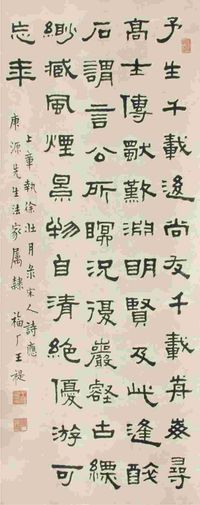 予生千載後尚友千載前每尋
高士傳獨歎淵明賢及此逢醉
石謂言公所眠況復巖壑古縹
緲臧風煙景物自清絕優游可
忘年
上章執徐壯月彔宋人詩應
康源先生法家屬隸 福厂王禔